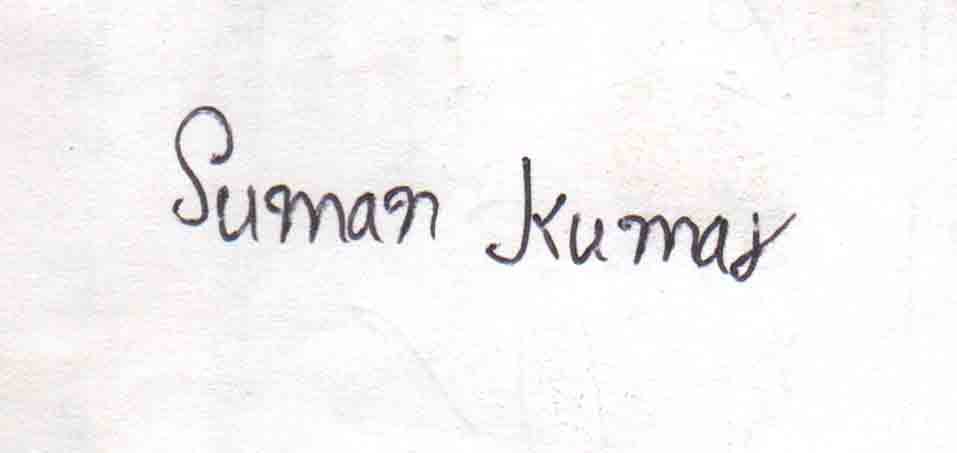 Suman Kumar